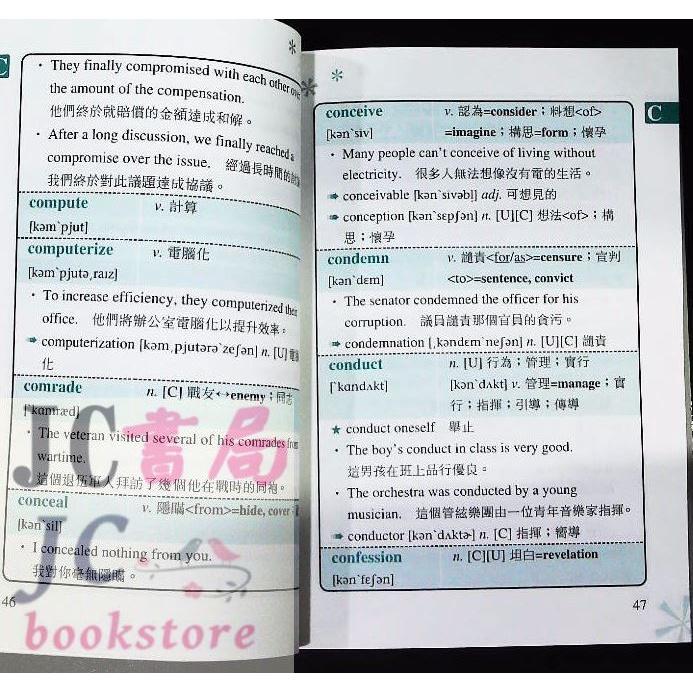 C
• They finally compromised with each other over
the amount of the compensation.
他們終於就賠償的金額達成和解。
• After a long discussion, we finally reached a
compromise over the issue. 經過長時間的討論
我們終於對此議題達成協議。
compute v. 計算
[kəm`pjut]
computerize v. 電腦化
[kəm`pjutə,raɪz]
• To increase efficiency, they computerized their
office. 他們將辦公室電腦化以提升效率。
➠ computerization [kəm,pjutərə`zeʃən] n. [U] 電腦
化
comrade n. [C] 戰友↔enemy；同志
[`kɑmræd]
• The veteran visited several of his comrades from
wartime.
這個退伍軍人拜訪了幾個他在戰時的同袍。
conceal v. 隱瞞<from>=hide, cover
[kən`sil]
• I concealed nothing from you.
我對你毫無隱瞞。
46
JC書局
JC
bookstore
C
conceive v. 認為=consider；料想<of>
[kən`siv] =imagine；構思=form；懷孕
• Many people can't conceive of living without
electricity. 很多人無法想像沒有電的生活。
➠ conceivable [kən`sivəbl] adj. 可想見的
➠ conception [kən`sɛpʃən] n. [U][C] 想法<of>；構
思；懷孕
condemn v. 譴責<for/as>=censure；宣判
[kən`dɛm] <to>=sentence, convict
• The senator condemned the officer for his
corruption. 議員譴責那個官員的貪污。
➠ condemnation [,kɑndɛm`neʃən] n. [U][C] 譴責
conduct n. [U] 行為；管理；實行
[`kɑndʌkt] [kən`dʌkt] v. 管理=manage；實
行；指揮；引導；傳導
★ conduct oneself 舉止
• The boy's conduct in class is very good.
這男孩在班上品行優良。
• The orchestra was conducted by a young
musician. 這個管絃樂團由一位青年音樂家指揮。
➠ conductor [kən`dʌktɚ] n. [C] 指揮；嚮導
confession n. [C][U] 坦白=revelation
[kən`fɛʃən]
47